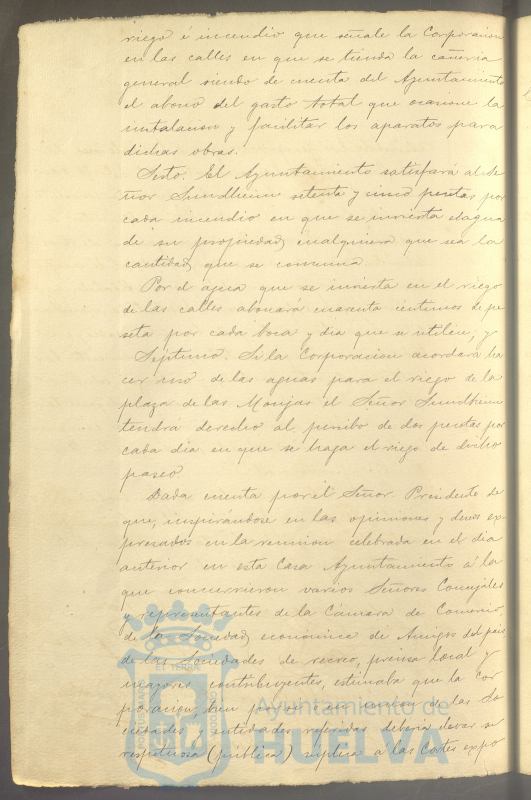 riego é incendio que señale la Corporacion
en las calles en que se tienda la cañeria
general siendo de cuenta del Ayuntamiento
el abono del gasto total que ocasione la
instalacion y facilitar los aparatos para
dichas obras.
Sesto. El Ayuntamiento satisfará al Se
ñor Sundheim setenta y cinco pesetas por
cada incendio en que se invierta el agua
de su propiedad, cualquiera que sea la
cantidad que se consuma
Por el agua que se invierta en el riego
de las calles abonará cuarenta centimos de pe
seta por cada boca y dia que se utilicen, y
Séptimo. Si la Corporacion acordara ha
cer uso de las aguas para el riego de la
plaza de las Monjas el Señor Sundheim
tendra derecho al percibo de dos pesetas por
cada dia en que se haga el riego de dicho
paseo
Dada cuenta por el Señor Presidente de
que, inspirándose en las opiniones y deseos ex-
presados en la reunion celebrada en el dia
anterior en esta Casa Ayuntamiento á la
que concurrieron varios Señores Concejales
y representantes de la Cámara de Comercio,
de la Sociedad económica de Amigos del pais,
de las Sociedades de recreo, prensa local y
mayores contribuyentes, estimaba que la cor
poracion, bien por si ó en union de las So
ciedades y entidades referidas deberia elevar su
respetuosa (pública) suplica a las Cortes expo
Ayuntamiento de
HUELVA